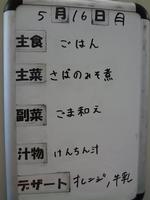 5月16日月
主食 ごはん
主菜 さばのみそ煮
副菜 ごま和え
汁物 けんちん汁
デザート オレンジ,牛乳